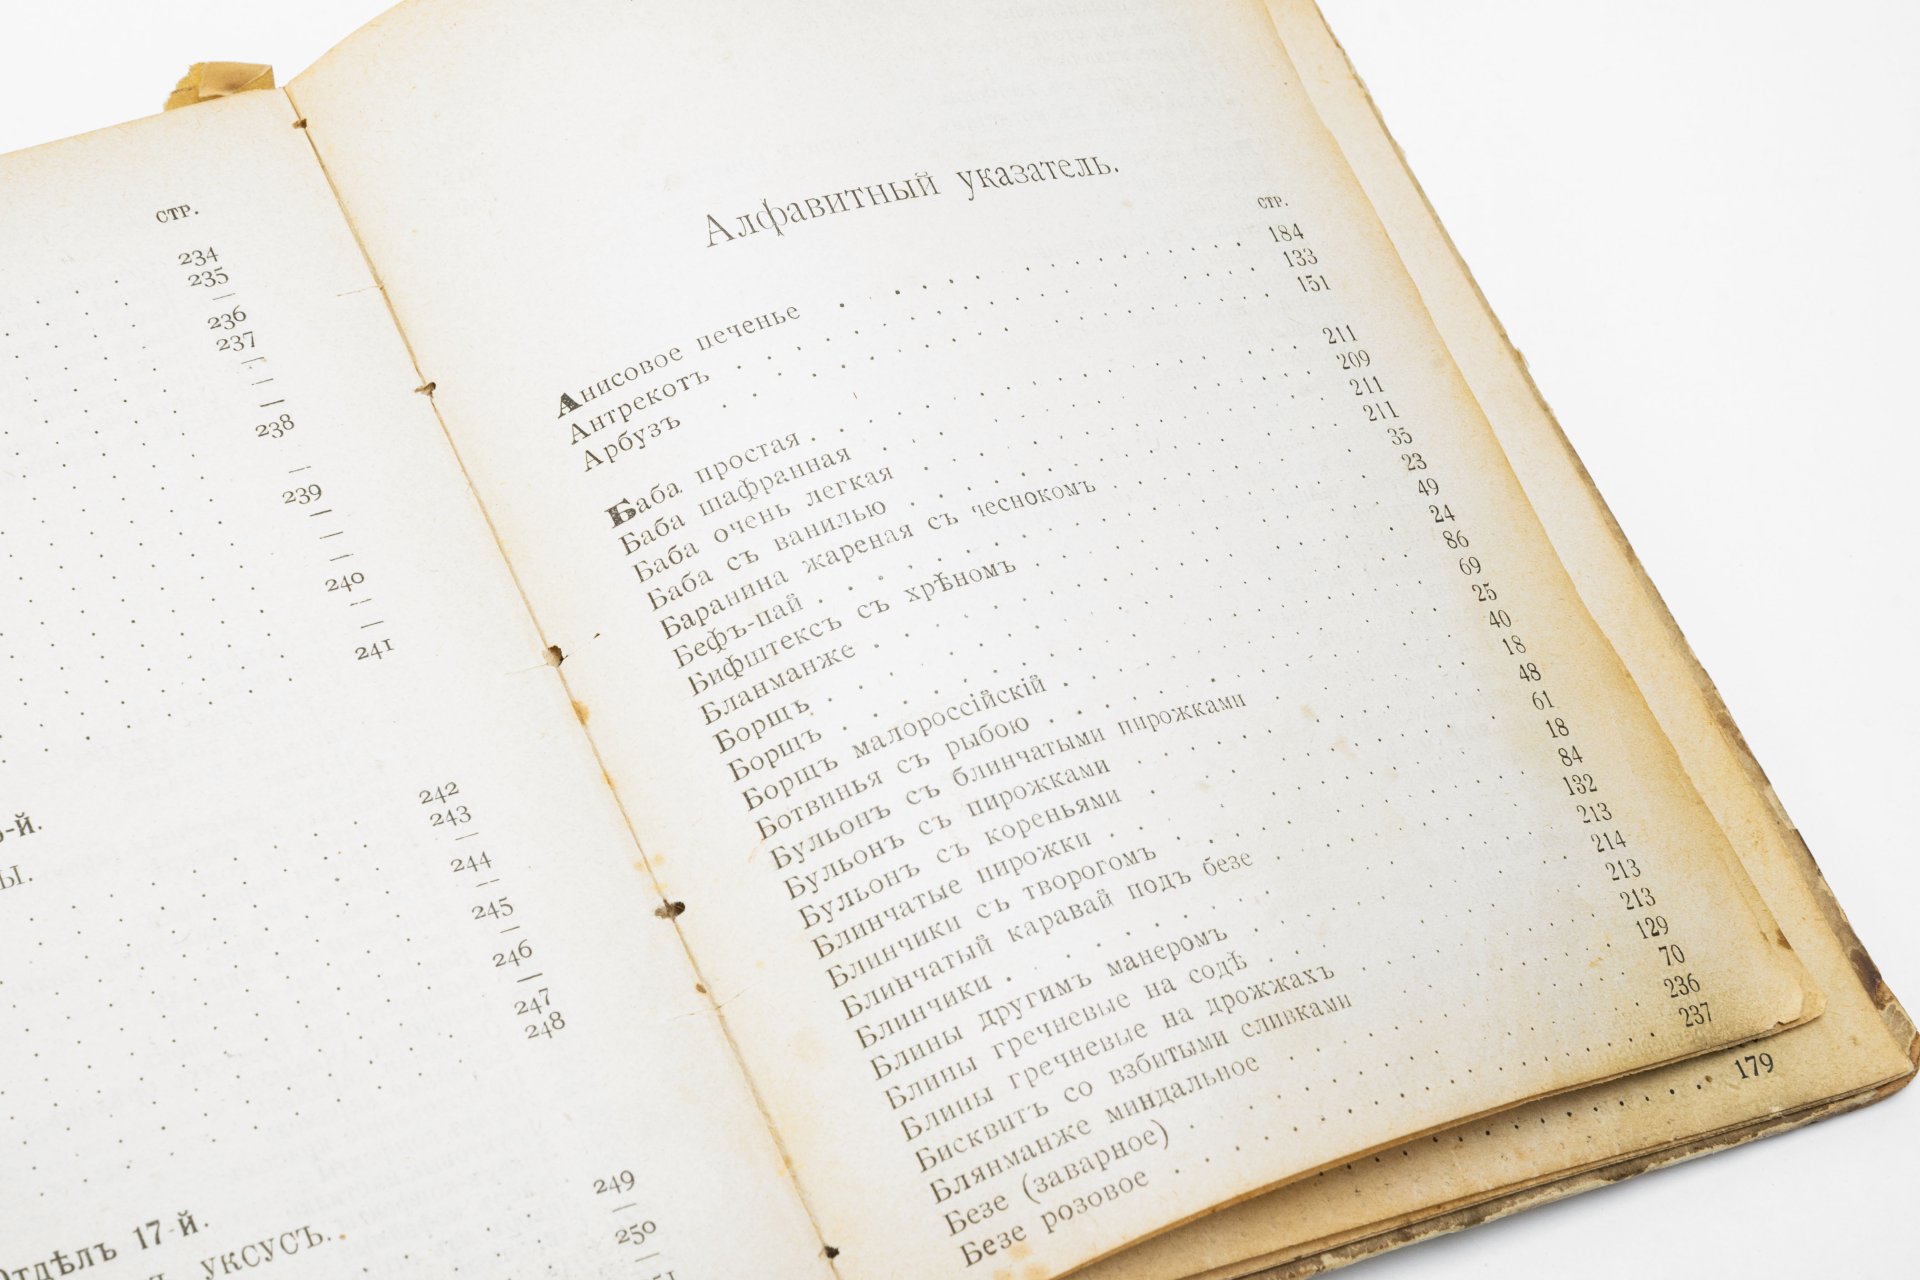 стр.
234
235
—
236
237
—
—
—
238
—
239
—
—
—
240
—
—
241
-й.
ы.
242
243
—
244
—
245
—
246
—
247
248
Отдѣлъ 17-й.
уксусъ.
249
—
250
—
Алфавитный указатель.
стр.
Анисовое печенье . . . . . 184
Антрекотъ . . . . . 133
Арбузъ . . . . . 151
Баба простая . . . . . 211
Баба шафранная . . . . . 209
Баба очень легкая . . . . . 211
Баба съ ванилью . . . . . 211
Баранина жареная съ чеснокомъ . . . . . 35
Бефъ-пай . . . . . 23
Бифштексъ съ хрѣномъ . . . . . 49
Бланманже . . . . . 24
Борщъ . . . . . 86
Борщъ . . . . . 69
Борщъ малороссійскій . . . . . 25
Ботвинья съ рыбою . . . . . 40
Бульонъ съ блинчатыми пирожками . . . . . 18
Бульонъ съ пирожками . . . . . 48
Бульонъ съ кореньями . . . . . 61
Блинчатые пирожки . . . . . 18
Блинчики съ творогомъ . . . . . 84
Блинчатый каравай подъ безе . . . . . 132
Блинчики . . . . . 213
Блины другимъ манеромъ . . . . . 214
Блины гречневые на содѣ . . . . . 213
Блины гречневые на дрожжахъ . . . . . 213
Бисквитъ со взбитыми сливками . . . . . 129
Блянманже миндальное . . . . . 70
Безе (заварное) . . . . . 236
Безе розовое . . . . . 237
179